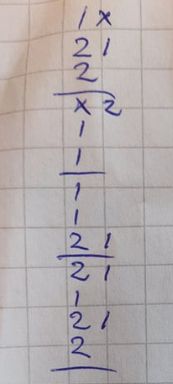 1 x
2 1
2
x 2
1
1
1
1
2 1
2 1
1
2 1
2